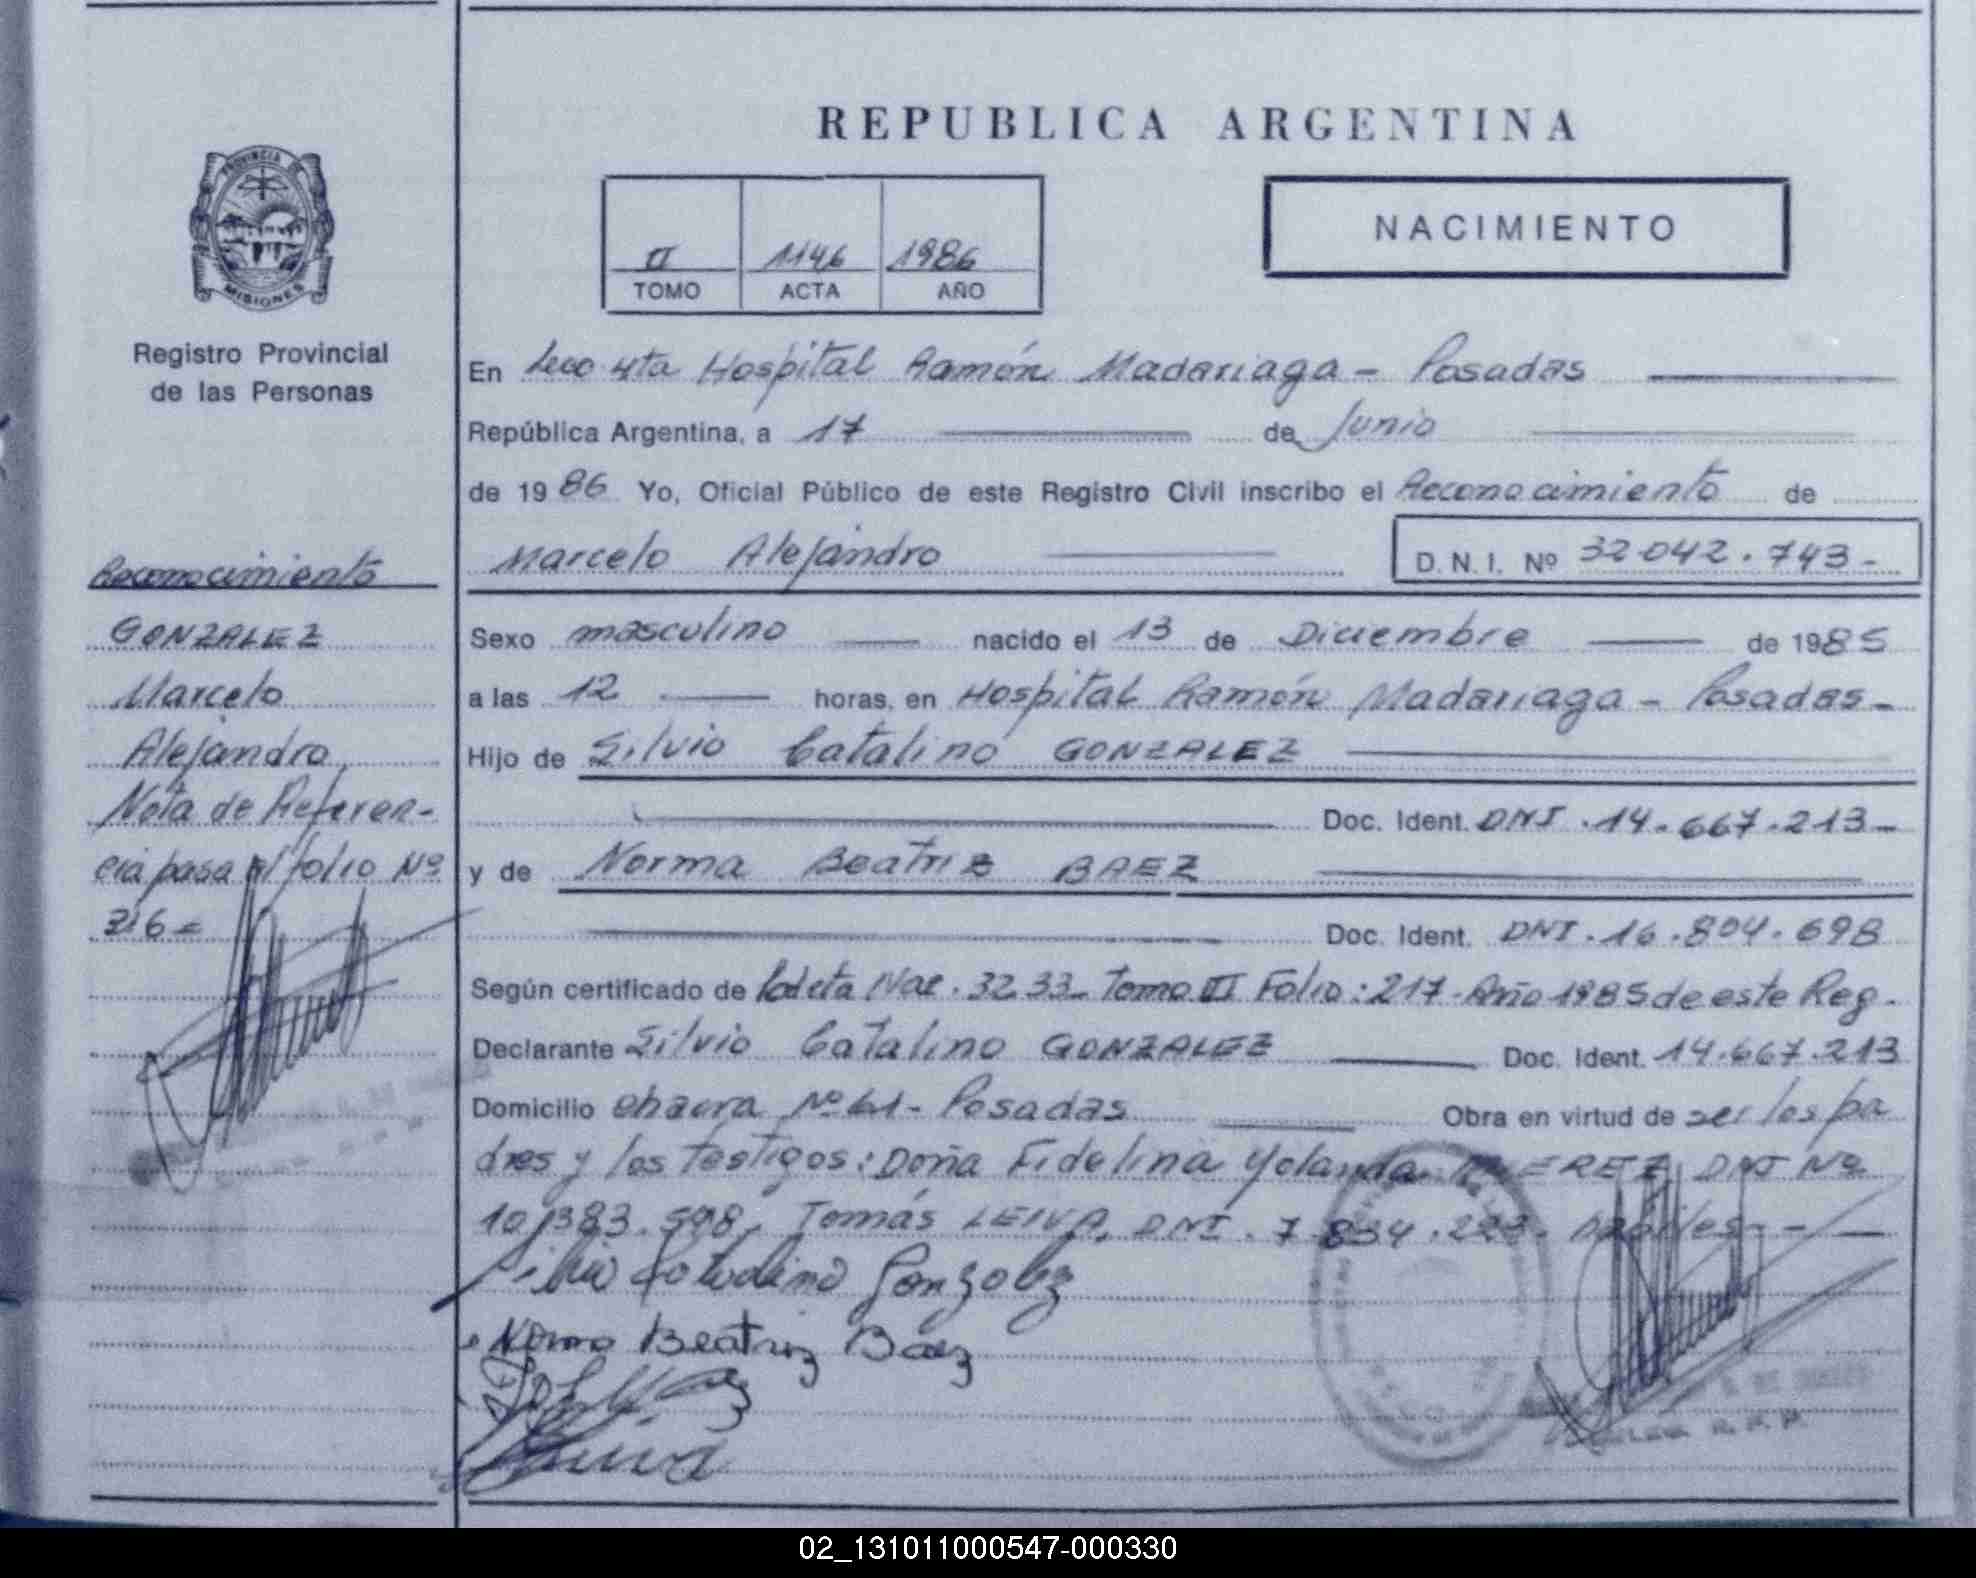 REPUBLICA ARGENTINA
PROVINCIA DE
MISIONES
II 1146 1986
TOMO ACTA AÑO
NACIMIENTO
Registro Provincial
de las Personas
En Secc 4ta Hospital Ramón Madariaga - Posadas
República Argentina, a 17 de Junio
de 1986 Yo, Oficial Público de este Registro Civil inscribo el Reconocimiento de
Marcelo Alejandro D.N.I. Nº 32.042.743-
Reconocimiento
GONZALEZ
Marcelo
Alejandro
Nota de Referen-
cia pasa al folio Nº
216=
Sexo masculino nacido el 13 de Diciembre de 1985
a las 12 horas, en Hospital Ramón Madariaga - Posadas-
Hijo de Silvio Catalino GONZALEZ
Doc. Ident. DNI.14.667.213-
y de Norma Beatriz BAEZ
Doc. Ident. DNI.16.804.698
Según certificado de Nac. 3233- Tomo III Folio: 217- Año 1985 de este Reg.
Declarante Silvio Catalino GONZALEZ Doc. Ident. 14.667.213
Domicilio chacra Nº 61- Posadas Obra en virtud de ser los pa
dres y los testigos: Doña Fidelina Yolanda DNI Nº
10.383.598, Tomás LEIVA, DNI. 7.834.223.
Silvio Catalino Gonzalez
Norma Beatriz Baez
02_131011000547-000330